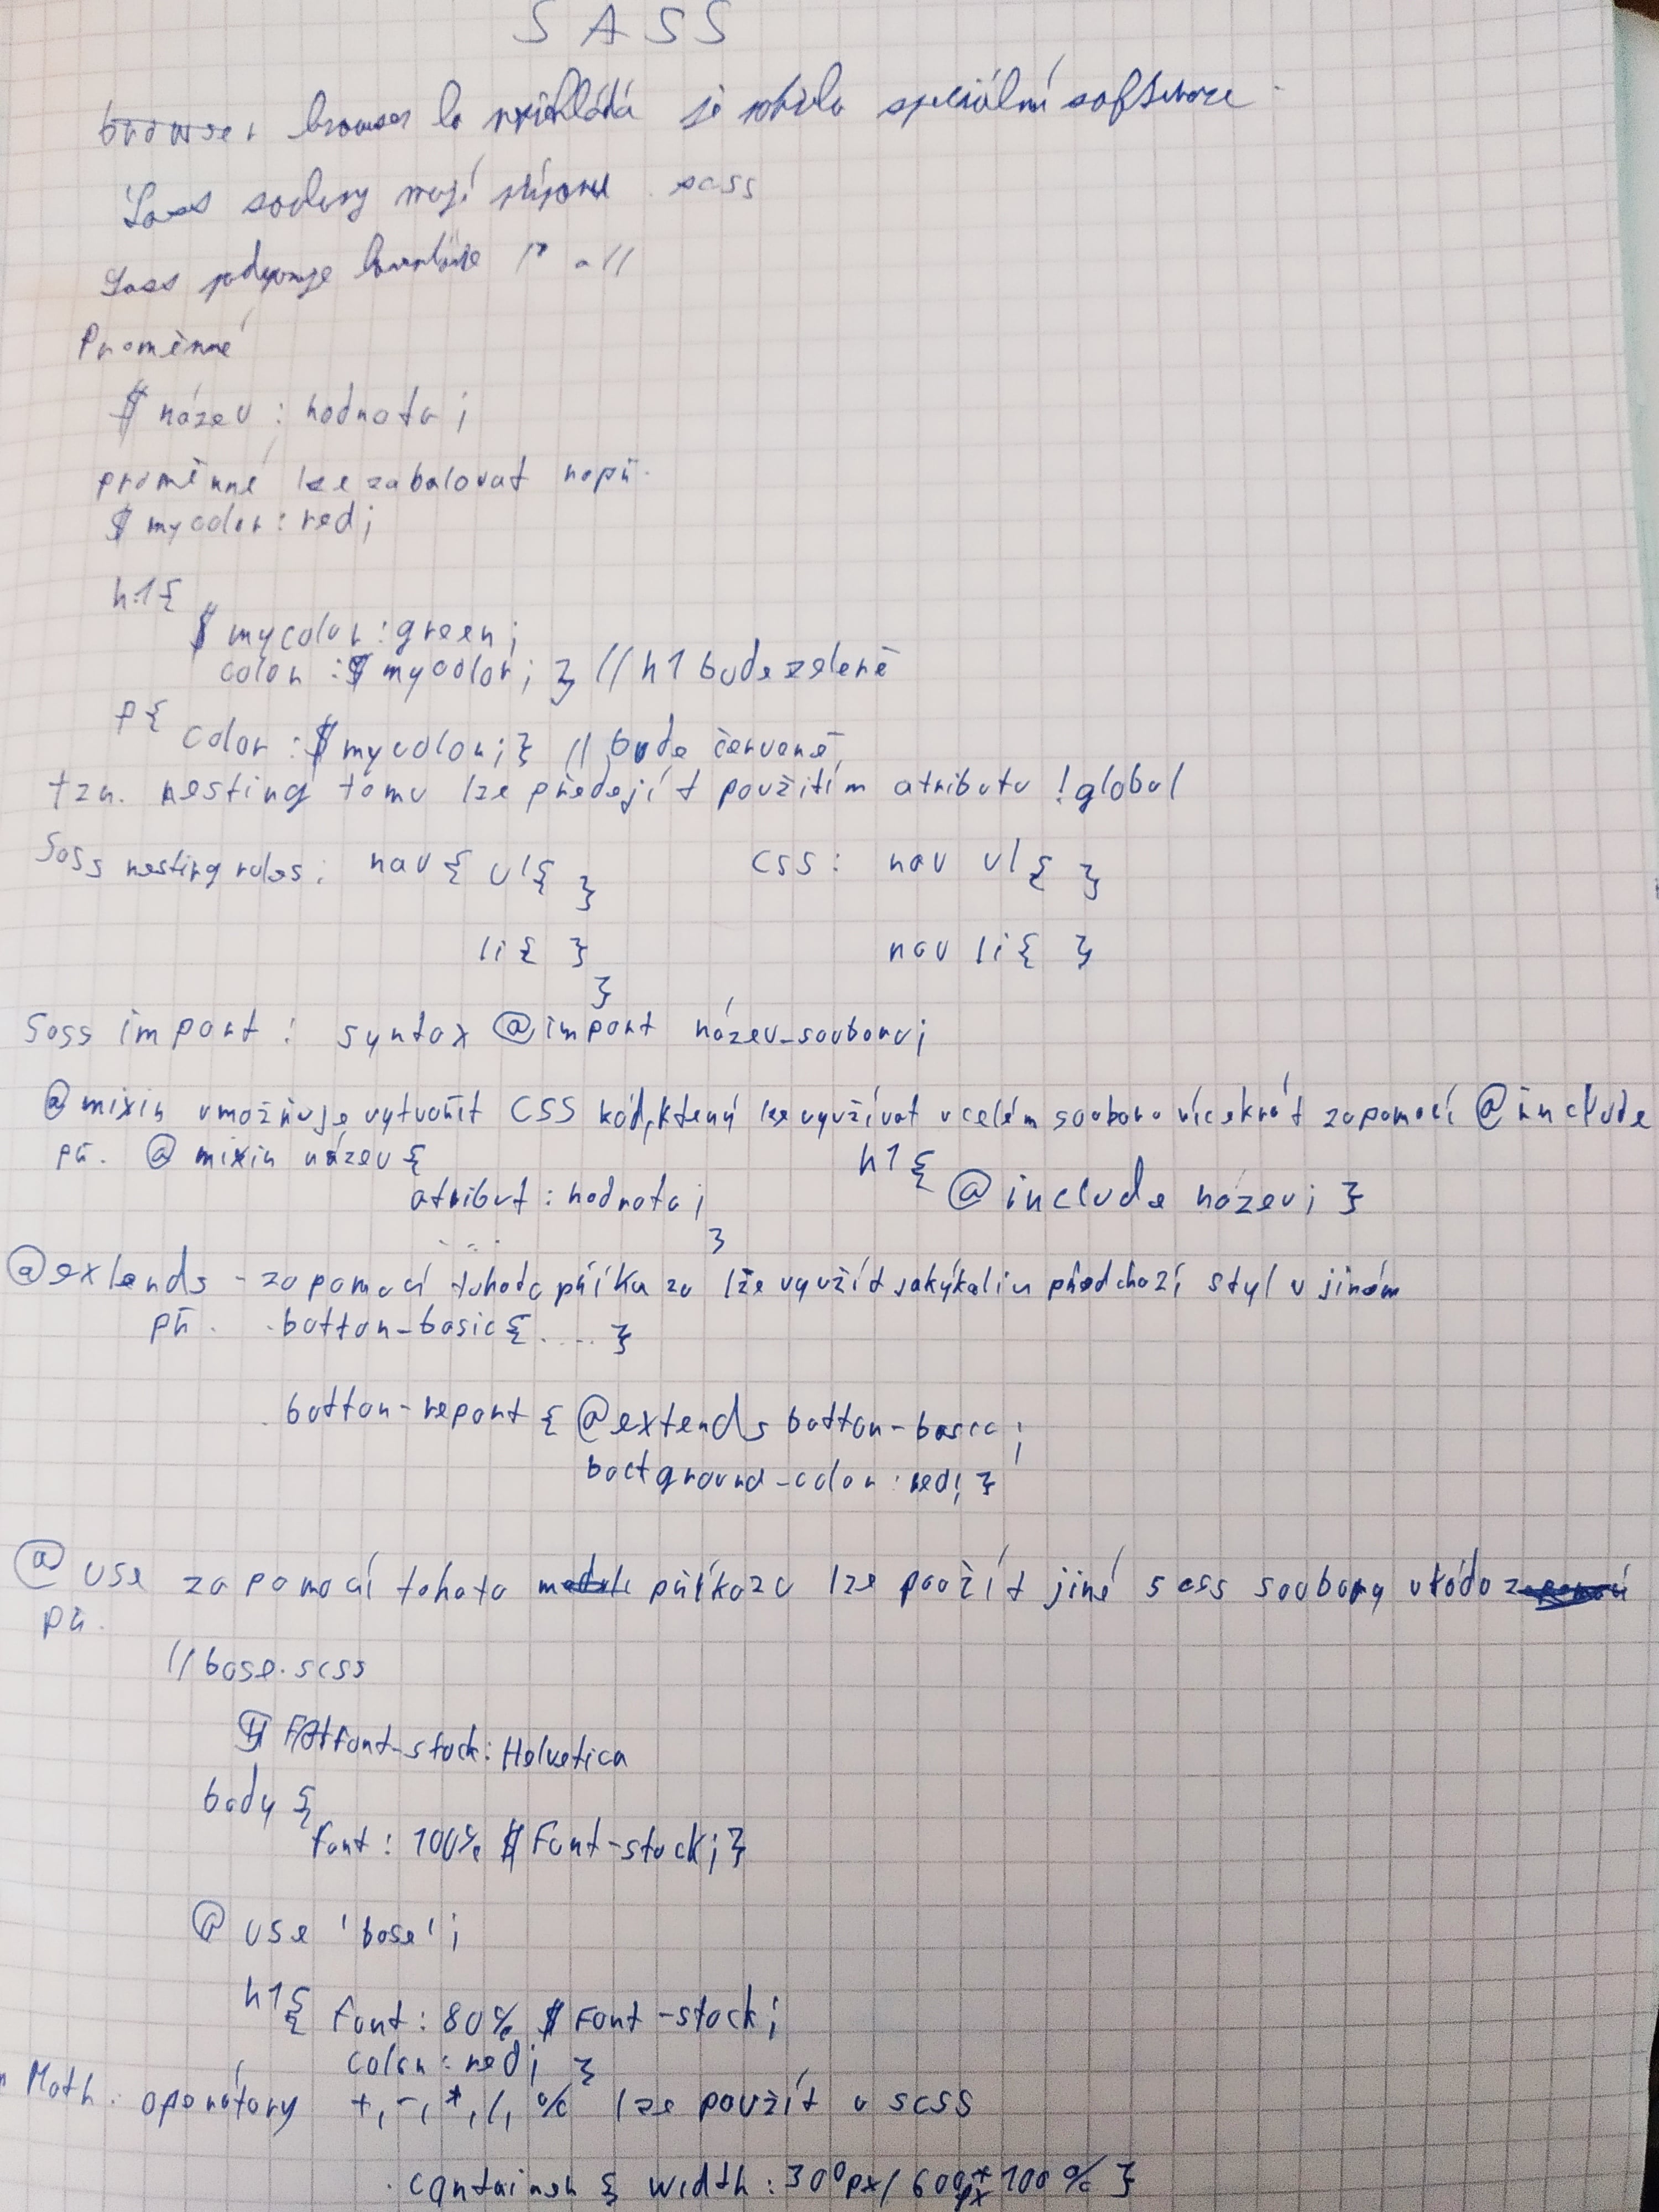 SASS
browser to nepřekládá je potřeba speciální software
Sass soubory mají příponu .scss
Sass podporuje komentáře /* a //
Proměnné
$ název : hodnota ;
proměnné lze zabalovat např.
$ mycolor : red ;
h1{
$ mycolor : green ;
color : $ mycolor ; } // h1 bude zeleně
p{
color : $ mycolor ; } // bude červeně
tzn. nesting tomu lze předejít použitím atributu !global
Sass nesting rules : nav { ul{ } CSS : nav ul{ }
li{ } nav li{ }
}
Sass import : syntax @import název_souboru ;
@mixin umožňuje vytvořit CSS kód, který lze využívat v celém souboru vícekrát za pomocí @include
př. @mixin název { h1{
atribut : hodnota ; @include název ; }
.... }
@extends - za pomocí tohoto příkazu lze využít jakýkoliv předchozí styl v jiném
př. .button-basic{ .... }
.button-report { @extends button-basic ;
background-color : red ; }
@use za pomocí tohoto příkazu lze použít jiné scss soubory v kódu
př.
//base.scss
$ font-stack : Helvetica
body {
font : 100% $ Font-stack ; }
@use 'base' ;
h1{ font : 80% $ Font-stack ;
color : red ; }
Math : operátory +, -, *, /, % lze použít v scss
.container { width : 300px / 600px * 100% }